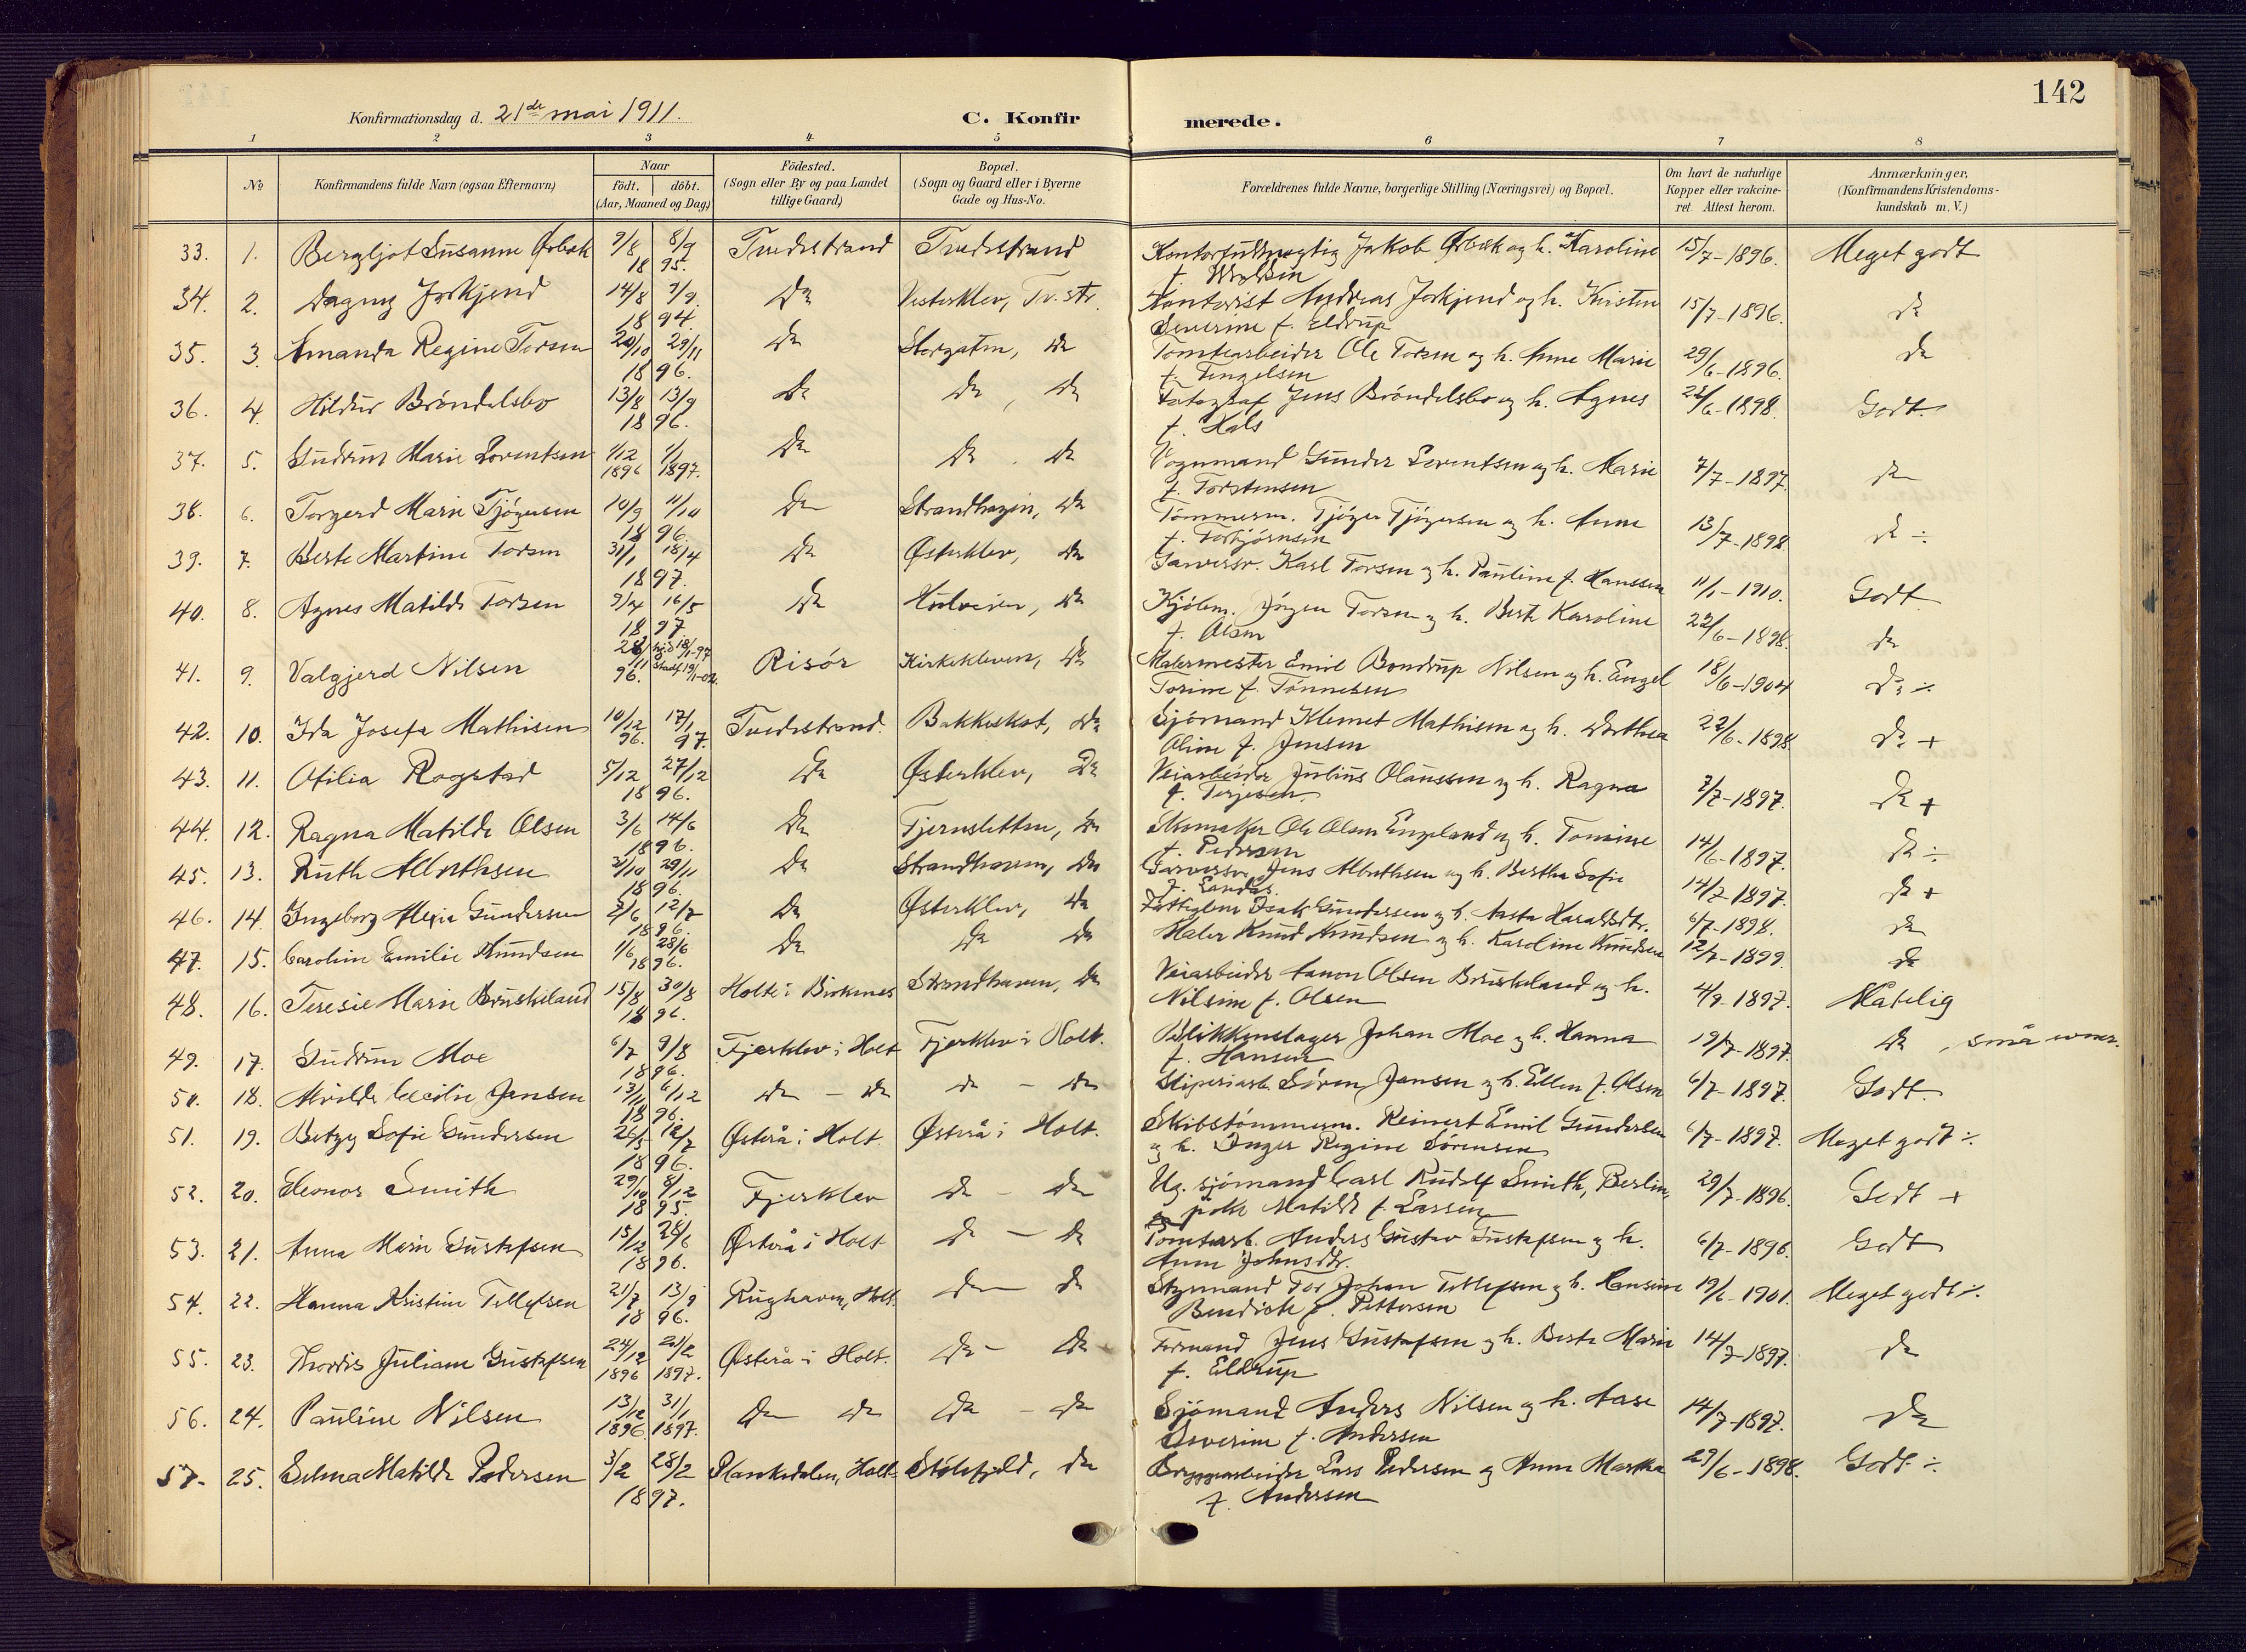 142
Konfirmationsdag d. 21de mai 1911.
C. Konfirmerede.
1 2 3 4 5 6 7 8
No
Konfirmandens fulde Navn (ogsaa Efternavn)
Naar
födt. döbt.
(Aar, Maaned og Dag)
Födested.
(Sogn eller By og paa Landet
tillige Gaard)
Bopæl.
(Sogn og Gaard eller i Byerne
Gade og Hus-No.
Forældrenes fulde Navne, borgerlige Stilling (Næringsvei) og Bopæl.
Om havt de naturlige
Kopper eller vakcine-
ret. Attest herom.
Anmærkninger,
(Konfirmandens Kristendoms-
kundskab m. V.)
33. 1. Bergljot Susanne Ørbæk 9/8 8/9 Tvedestrand Tvedestrand Kontorfuldmægtig Jakob Ørbæk og h. Karoline 15/7-1896. Meget godt
18 95. f.
34. 2. Dagny 14/8 9/9 Do Vesterklev, Tv.str. Kontorist Andreas og h. Kristen 15/7-1896. do
18 94. Severine f. Eldrup
35. 3. Amanda Regine Torsen 20/10 29/11 Do Storgaten, Do Tomtearbeider Ole Torsen og h. Anne Marie 29/6-1896. Do
18 96. f. Tengelsen
36. 4. Hildur Bröndelsbo 13/8 13/9 Do Do, Do Fotograf Jens Bröndelsbo og h. Agnes 22/6-1898. Godt.
18 96. f. Hals
37. 5. Gudrun Marie Lorentsen 1/12 1/1 Do Do. Do Vognmand Gunder Lorentsen og h. Marie 7/7-1897. Do
1896 1897. f. Torstensen
38. 6. Torgerd Marie Tjögersen 10/9 11/10 Do Strandhagen, Do Tömmerm. Tjöger Tjögersen og h. Anne 13/7-1898. do ÷
18 96. f. Torbjörnsen
39. 7. Berte Martine Torsen 31/1 18/4 Do Østerklev, Do Garversv. Karl Torsen og h. Pauline f. Hanssen 11/1-1910. Godt
18 97.
40. 8. Agnes Matilde Torsen 9/4 16/5 Do Hulveien, Do Kjölem. Jörgen Torsen og h. Berte Karoline 22/6-1898. do
18 97. f. Olsen
41. 9. Valgjerd Nilsen Risör Kirkekleven, Do Malermester Emil Bondrup Nilsen og h. Engel 18/6-1904 Do ÷
96. Torine f. Tönnesen
42. 10. Ida Josefa Mathisen 10/12 17/1 Tvedestrand. Bakkeskot, Do Sjömand Klemet Mathisen og h. Dorthea 22/6-1898. Do +
96. 97. Oline f. Jensen
43. 11. Otilia Rogstad 5/12 27/12 Do Østerklev, Do Veiarbeider Julius Olaussen og h. Ragna 7/7-1897. Do +
18 96. f. Terjesen
44. 12. Ragna Matilde Olsen 3/6 14/6 Do Tjernsletten, Do Skomaker Ole Olsen Engeland og h. Tomine 14/6-1897. Do ÷
18 96. f. Pedersen
45. 13. Ruth Albrethsen 31/10 29/11 Do Strandhaven, Do Garversv. Jens Albrethsen og h. Bertha Sofie 14/7-1897. Do +
18 96. f. Sandås.
46. 14. Ingeborg Alexia Gundersen 2/6 12/7 Do Østerklev, Do Isak Gundersen og h. Aasta Haraldsdtr. 6/7-1898. Do
18 96.
47. 15. Caroline Emilie Knudsen 1/6 28/6 Do Do Do Maler Knud Knudsen og h. Karoline Knudsen 12/7-1899. do
18 96.
48. 16. Teresie Marie Bruskeland 15/8 30/8 Holte i Birkenes Strandhaven, Do Veiarbeider Aanon Olsen Bruskeland og h. 4/9-1897. Mådelig
18 96. Nilsine f. Olsen
49. 17. Gudrun Moe 6/7 9/8 Fjerklev i Holt Fjerklev i Holt. Blikkenslager Johan Moe og h. Hanna 19/7-1897. Do, små evner.
18 96. f. Hansen
50. 18. Alvilde Cecilie Jansen 13/11 6/12 Do - Do Do - Do Sliperiarb. Sören Jansen og h. Ellen f. Olsen 6/7-1897. Godt.
18 96.
51. 19. Betzy Sofie Gundersen 26/5 12/7 Østerå i Holt. Østerå i Holt. Skibstömmerm. Reinert Emil Gundersen 6/7-1897. Meget godt ÷
18 96. og h. Inger Regine Sörensen
52. 20. Eleonor Smith 29/10 8/12 Fjerklev Do - Do Ug. sjömand Carl Rudolf Smith, Berlin, 29/7-1896. Godt +
18 95. og pike Matilde f. Larsen
53. 21. Anna Marie Gustafsen 15/12 28/6 Østerå i Holt Do - Do Tomtarb. Anders Gustav Gustafsen og h. 6/7-1896. Godt
18 96. Anne Johnsdtr.
54. 22. Hanna Kristine Tellefsen 21/7 13/9 Rughaven, Holt. Do - Do Styrmand Tor Johan Tellefsen og h. Hansine 19/6-1901. Meget godt ÷
18 96. Bendicte f. Pettersen
55. 23. Thordis Juliane Gustafsen 24/12 21/2 Østerå i Holt. Do - Do Formand Jens Gustafsen og h. Berte Marie 14/7-1897. Do
1896 1897. f. Eldrup
56. 24. Pauline Nilsen 13/12 31/1 Do Do Do - Do Sjömand Anders Nilsen og h. Aase 14/7-1897. Do
1896. 1897. Severine f. Andersen
57. 25. Selma Matilde Pedersen 3/2 28/2 Plankedalen, Holt Stölefjeld, Do Bryggearbeider Lars Pedersen og Anne Martha 29/6-1898. Godt. ÷
18 97. f. Andersen